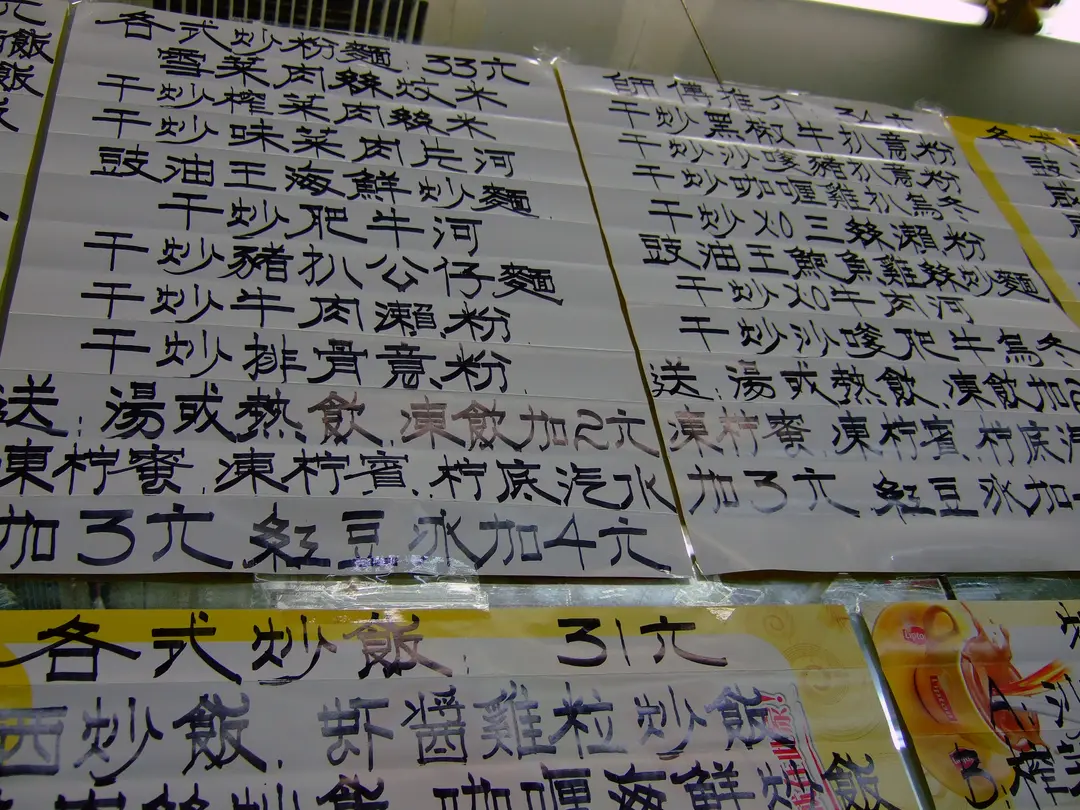 各式炒粉麵：33元
雪菜肉絲炆米
干炒榨菜肉絲米
干炒味菜肉片河
豉油王海鮮炒麵
干炒肥牛河
干炒豬扒公仔麵
干炒牛肉瀨粉
干炒排骨意粉
送：湯或熱飲，凍飲加2元
凍柠蜜，凍柠賓，柠底汽水
加3元 紅豆冰加4元
師傅推介 34元
干炒黑椒牛扒意粉
干炒沙嗲豬扒意粉
干炒咖喱雞扒烏冬
干炒XO三絲瀨粉
豉油王魚雞絲炒麵
干炒XO牛肉河
干炒沙嗲肥牛烏冬
送：湯或熱飲，凍飲加2
凍柠蜜，凍柠賓，柠底汽
加3元 紅豆冰加
飯
飯
各式
豉
咸
各式炒飯：31元
西炒飯，虾醬雞粒炒飯
炒飯 咖喱海鮮炒飯
Lipton
榨